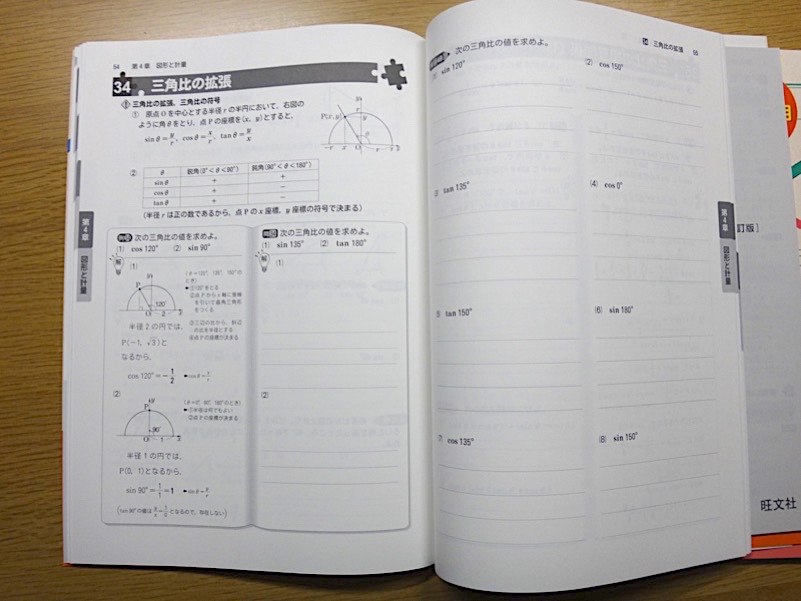 54 第4章 図形と計量
34 三角比の拡張
三角比の拡張、三角比の符号
① 原点Oを中心とする半径rの半円において、右図の
ように角θをとり、点Pの座標を(x, y)とすると、
sin θ = y/r、cos θ = x/r、tan θ = y/x
P(x, y)
② θ 鋭角(0°<θ<90°) 鈍角(90°<θ<180°)
sin θ + +
cos θ + −
tan θ + −
(半径rは正の数であるから、点Pのx座標、y座標の符号で決まる)
次の三角比の値を求めよ。
(1) cos 120° (2) sin 90°
解
(1)
P
120°
半径2の円では、
P(−1, √3)と
なるから、
cos 120° = −1/2
(2)
P
90°
半径1の円では、
P(0, 1)となるから、
sin 90° = 1/1 = 1
次の三角比の値を求めよ。
(1) sin 135° (2) tan 180°
解
(1)
(2)
第4章 図形と計量
34 三角比の拡張 55
次の三角比の値を求めよ。
sin 120°
(2) cos 150°
tan 135°
(4) cos 0°
tan 150°
(6) sin 180°
(7) cos 135°
(8) sin 150°
第4章 図形と計量
訂版〕
旺文社